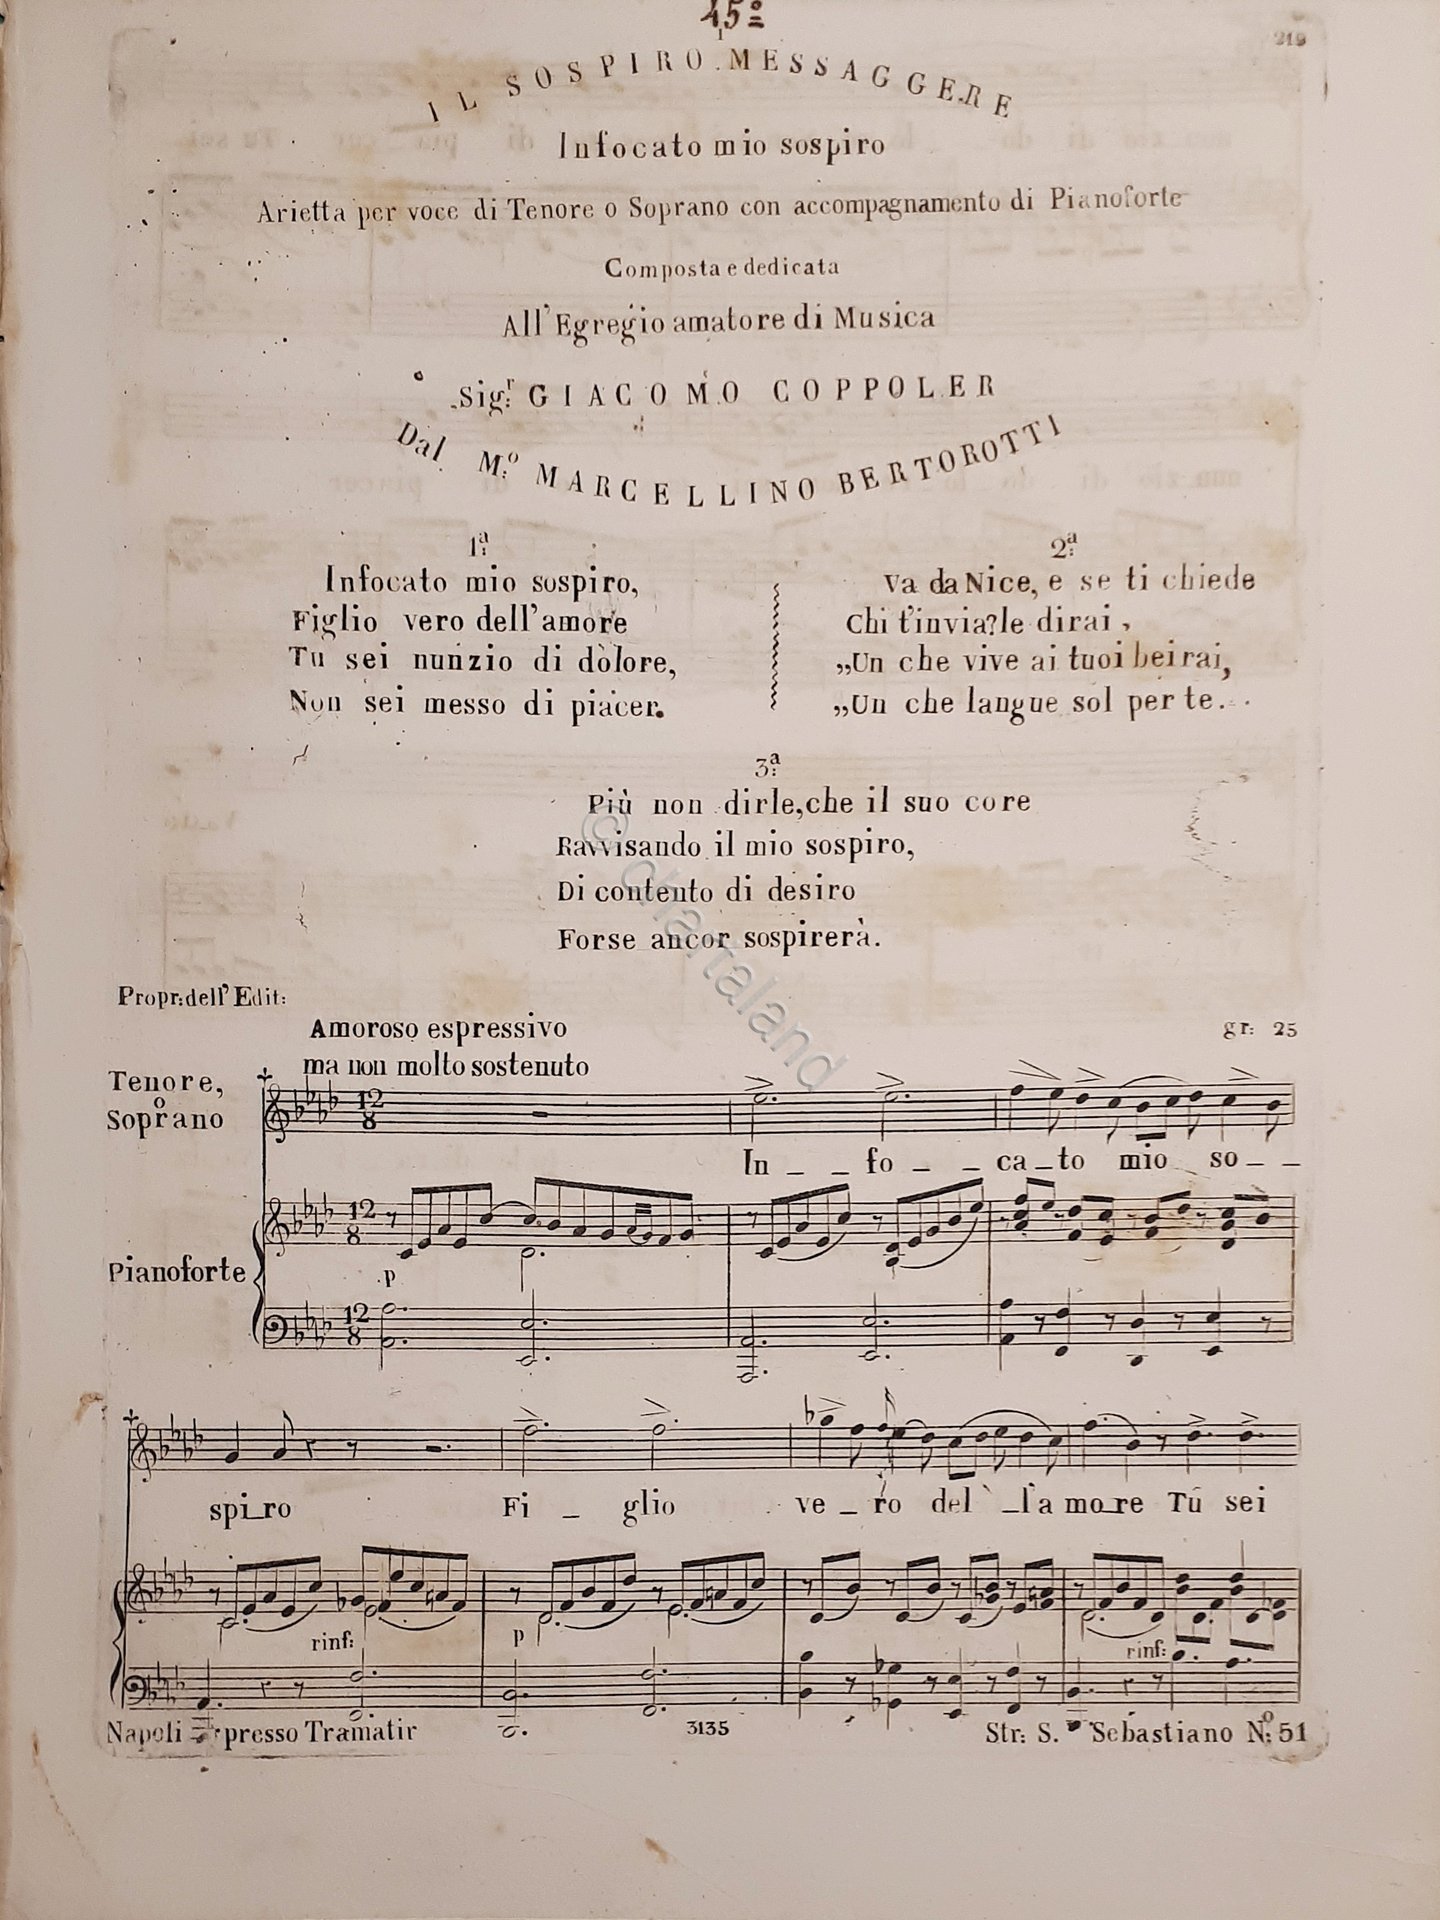 45º
219
IL SOSPIRO MESSAGGERE
Infocato mio sospiro
Arietta per voce di Tenore o Soprano con accompagnamento di Pianoforte
Composta e dedicata
All' Egregio amatore di Musica
Sig:r GIACOMO COPPOLER
Dal M:o MARCELLINO BERTOROTTI
1:a
Infocato mio sospiro,
Figlio vero dell'amore
Tu sei nunzio di dolore,
Non sei messo di piacer.
2:a
Va da Nice, e se ti chiede
Chi t'invia? le dirai,
„Un che vive ai tuoi bei rai,
„Un che langue sol per te..
3:a
Più non dirle, che il suo core
Ravvisando il mio sospiro,
Di contento di desiro
Forse ancor sospirerà.
© chartaland
Propr: dell' Edit:
gr: 25
Amoroso espressivo
ma non molto sostenuto
Tenore,
o
Soprano
12
8
In _ _ fo _ _ ca_to mio so_ _
Pianoforte
12
8
p
12
8
spi_ro Fi _ glio ve _ ro del _ l'a mo_re Tu sei
rinf: p rinf:
Napoli presso Tramatir
3135
Str: S. Sebastiano N:o 51